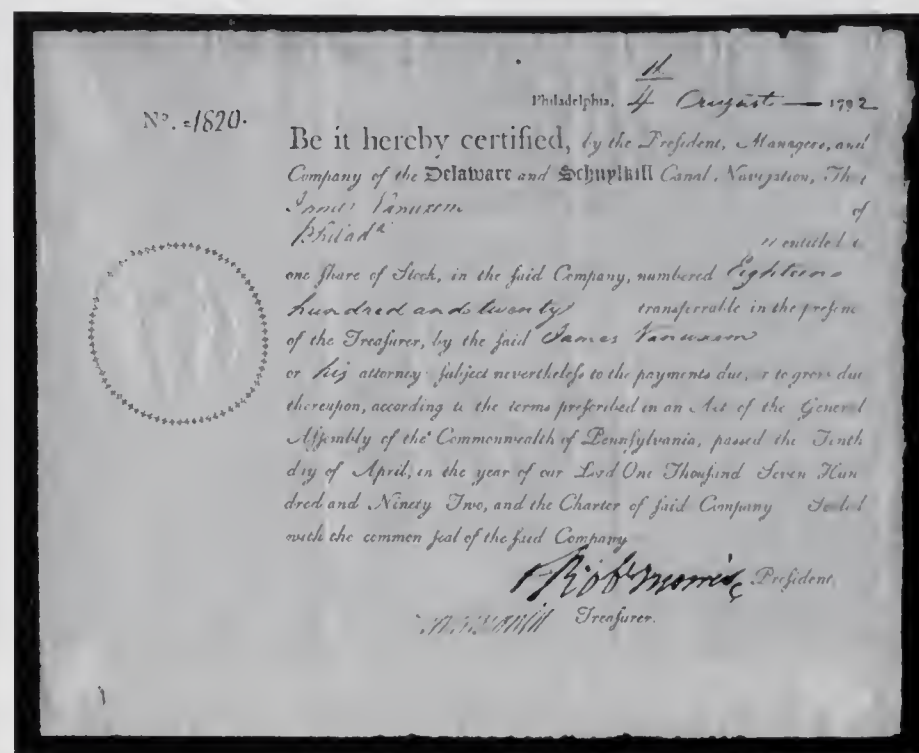 Philadelphia, 4th August — 1792
No. 1820.
Be it hereby certified, by the Preſident, Managers, and
Company of the Delaware and Schuylkill Canal Navigation, Tha
James Vanuxem of
Philada is entitled t
one ſhare of Stock, in the ſaid Company, numbered Eighteen
hundred and twenty transferrable in the preſenc
of the Treaſurer, by the ſaid James Vanuxem
or his attorney ſubject nevertheleſs to the payments due, or to grow due
thereupon, according to the terms preſcribed in an Act of the General
Aſſembly of the Commonwealth of Pennſylvania, paſſed the Tenth
day of April, in the year of our Lord One Thouſand Seven Hun
dred and Ninety Two, and the Charter of ſaid Company Sealed
with the common ſeal of the ſaid Company
Robt Morris, Preſident
Treaſurer.